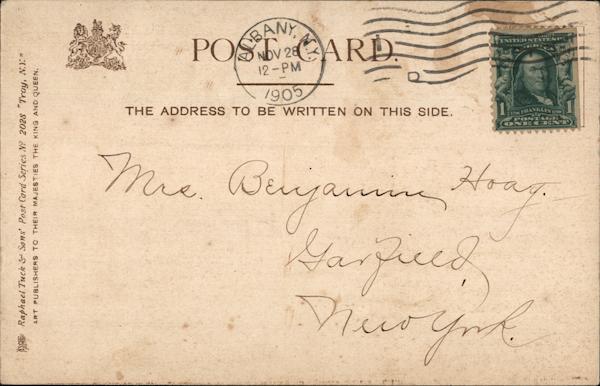 POST CARD.
ALBANY, N.Y.
NOV 28
12-PM
1905
UNITED STATES OF AMERICA
1 FRANKLIN 1
POSTAGE
ONE CENT
THE ADDRESS TO BE WRITTEN ON THIS SIDE.
Mrs. Benjamin Hoag.
Garfield
New York.
Raphael Tuck & Sons' Post Card Series Nº 2028 "Troy, N.Y."
ART PUBLISHERS TO THEIR MAJESTIES THE KING AND QUEEN.